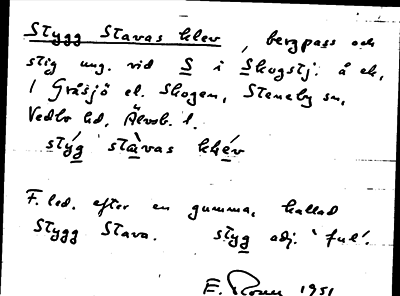 Stygg Stavas klev, bergpass och
stig ung. vid S i Skogstj. å ek,
1 Gräsjö el. Skogen, Steneby sn,
Vedbo hd, Älvsb. l.
stýg stàvas klév
F. led. efter en gumma, kallad
Stygg Stava. styg adj. 'ful'.
E. 1951